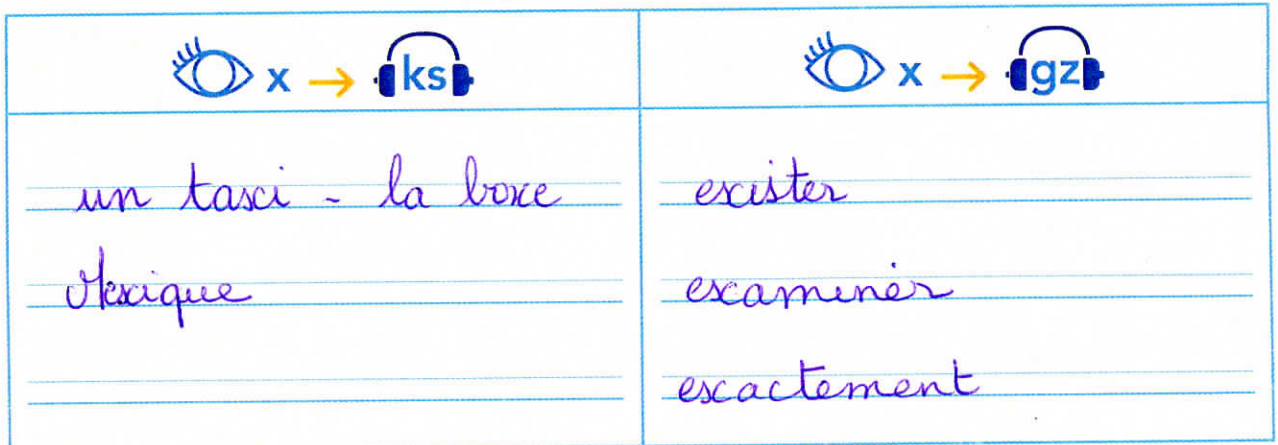 x → ks
x → gz
un taxi - la boxe
Mexique
exister
examiner
exactement